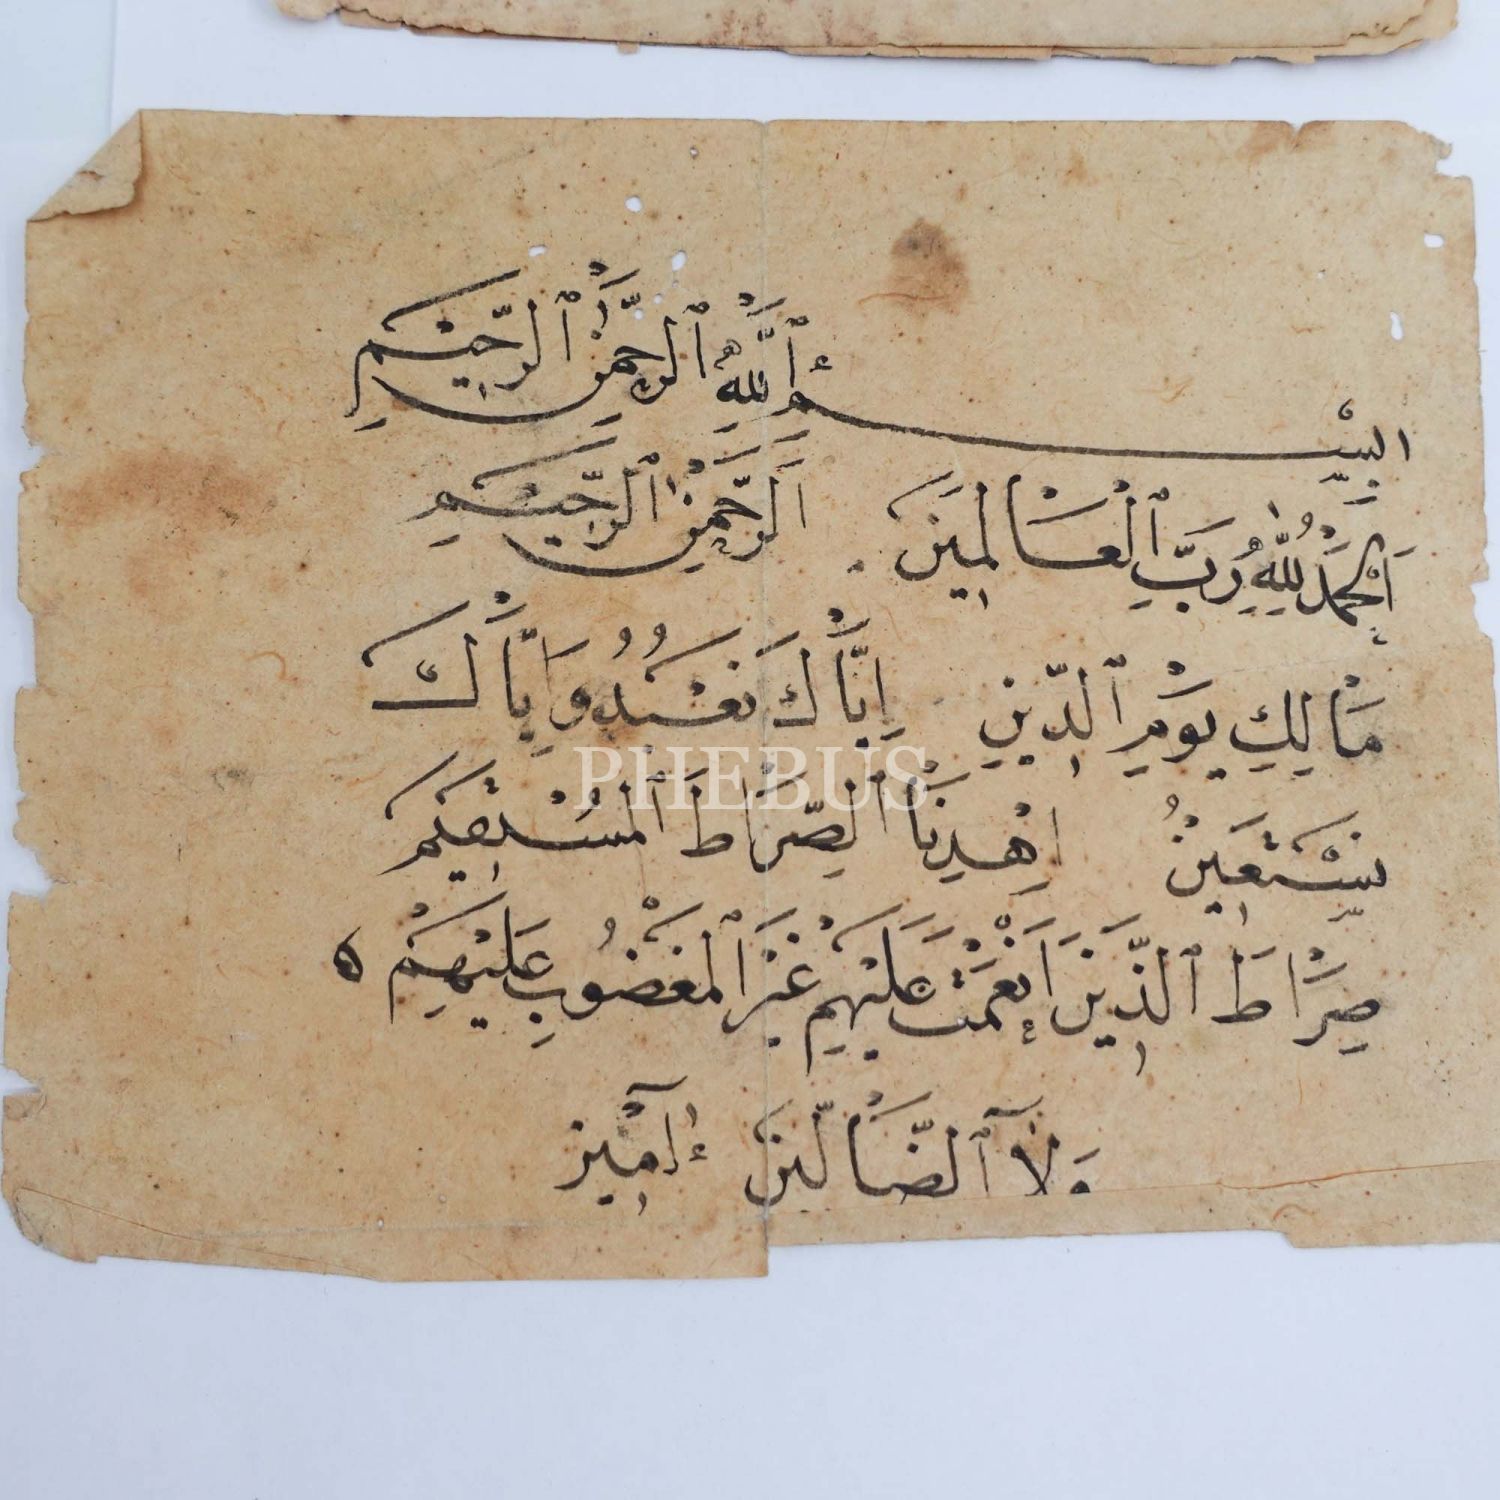 البِسْمِ ٱللَّهِ ٱلرَّحْمٰنِ ٱلرَّحِيْمِ
اَلْحَمْدُ لِلّٰهِ رَبِّ ٱلْعَالَمِيْنَ . اَلرَّحْمٰنِ ٱلرَّحِيْمِ
مَالِكِ يَوْمِ ٱلدِّيْنِ اِيَّاكَ نَعْبُدُ وَاِيَّاكَ
نَسْتَعِيْنُ اِهْدِنَا ٱلصِّرَاطَ ٱلْمُسْتَقِيْمَ
صِرَاطَ ٱلَّذِيْنَ اَنْعَمْتَ عَلَيْهِمْ غَيْرِ ٱلْمَغْضُوْبِ عَلَيْهِمْ ه
وَلَآ ٱلضَّالِّيْنَ اٰمِيْن
PHEBUS